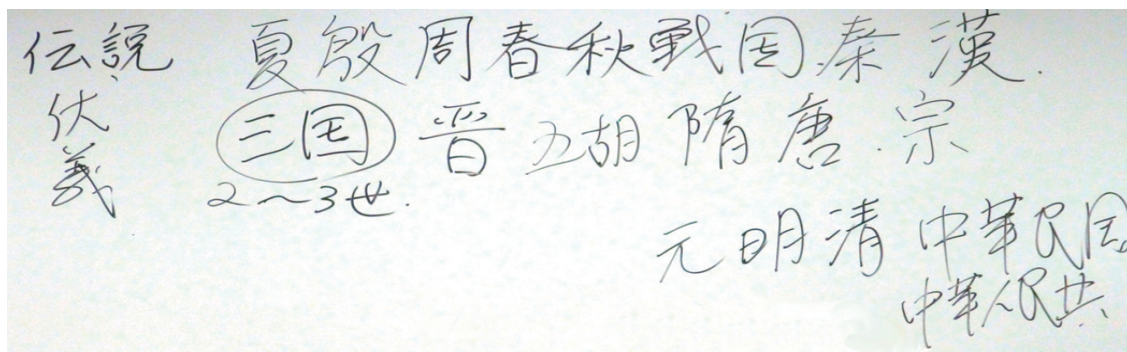 伝説 夏殷周春秋戦国.秦 漢.
伏義
三国 晋 五胡 隋 唐.宗
2〜3世.
元明清 中華民国
中華人民共